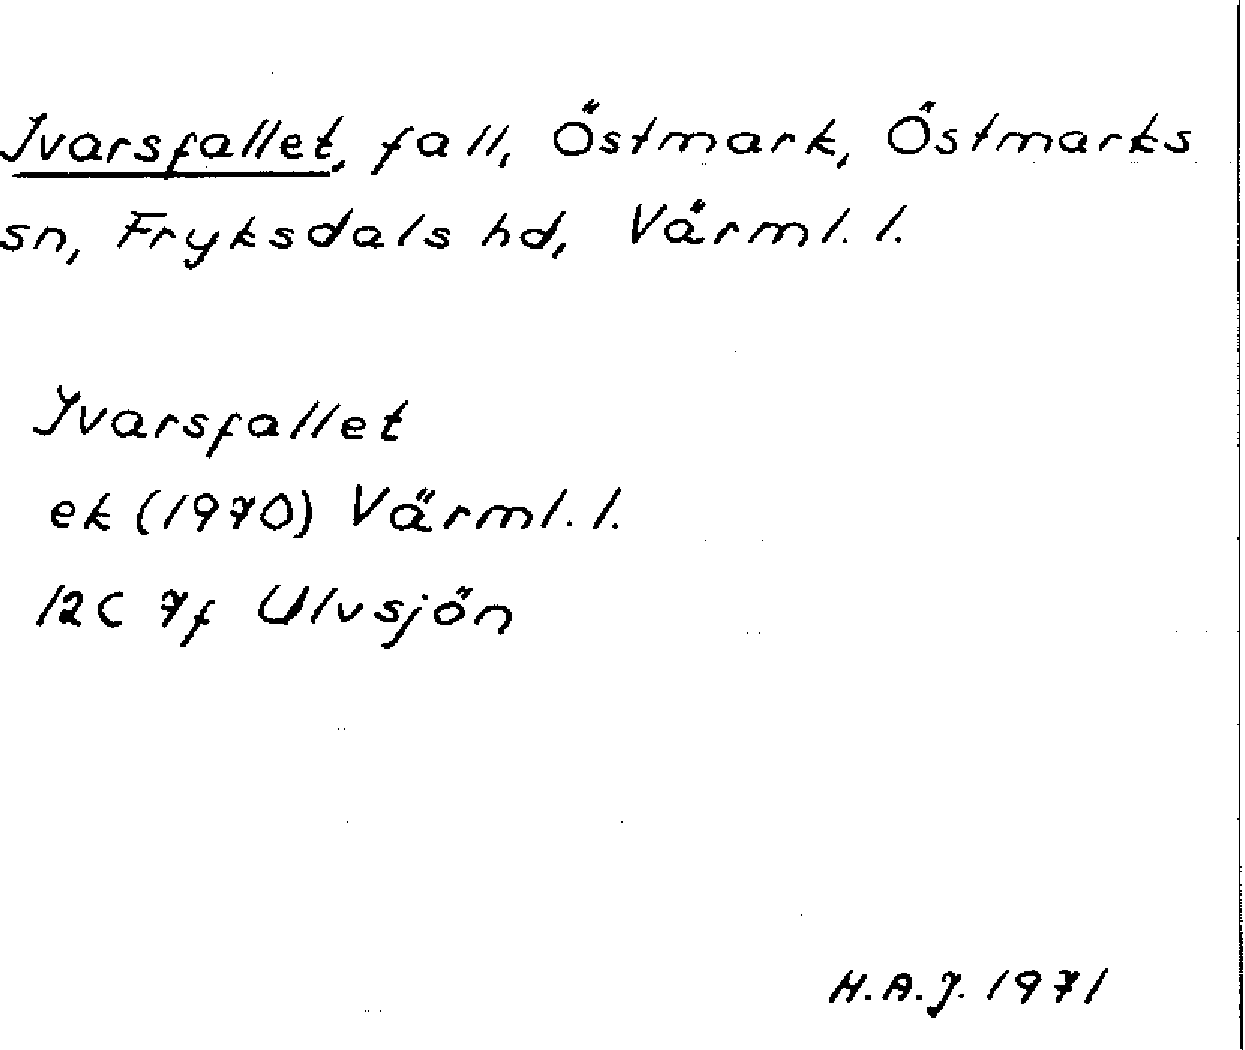 Ivarsfallet, fall, Östmark, Östmarks
sn, Fryksdals hd, Värml. l.
Ivarsfallet
ek (1970) Värml. l.
12C 7f Ulvsjön
H.A.J. 1971